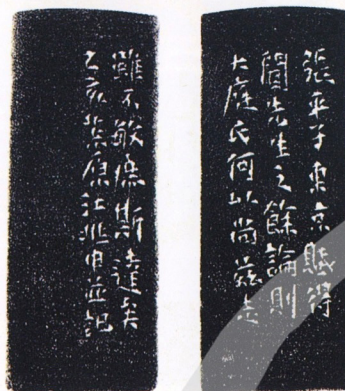 張平子東京賦得
聞先生之餘論則
大庭氏何以尚茲走
雖不敏庶斯達矣
乙亥茮原江兆申並記